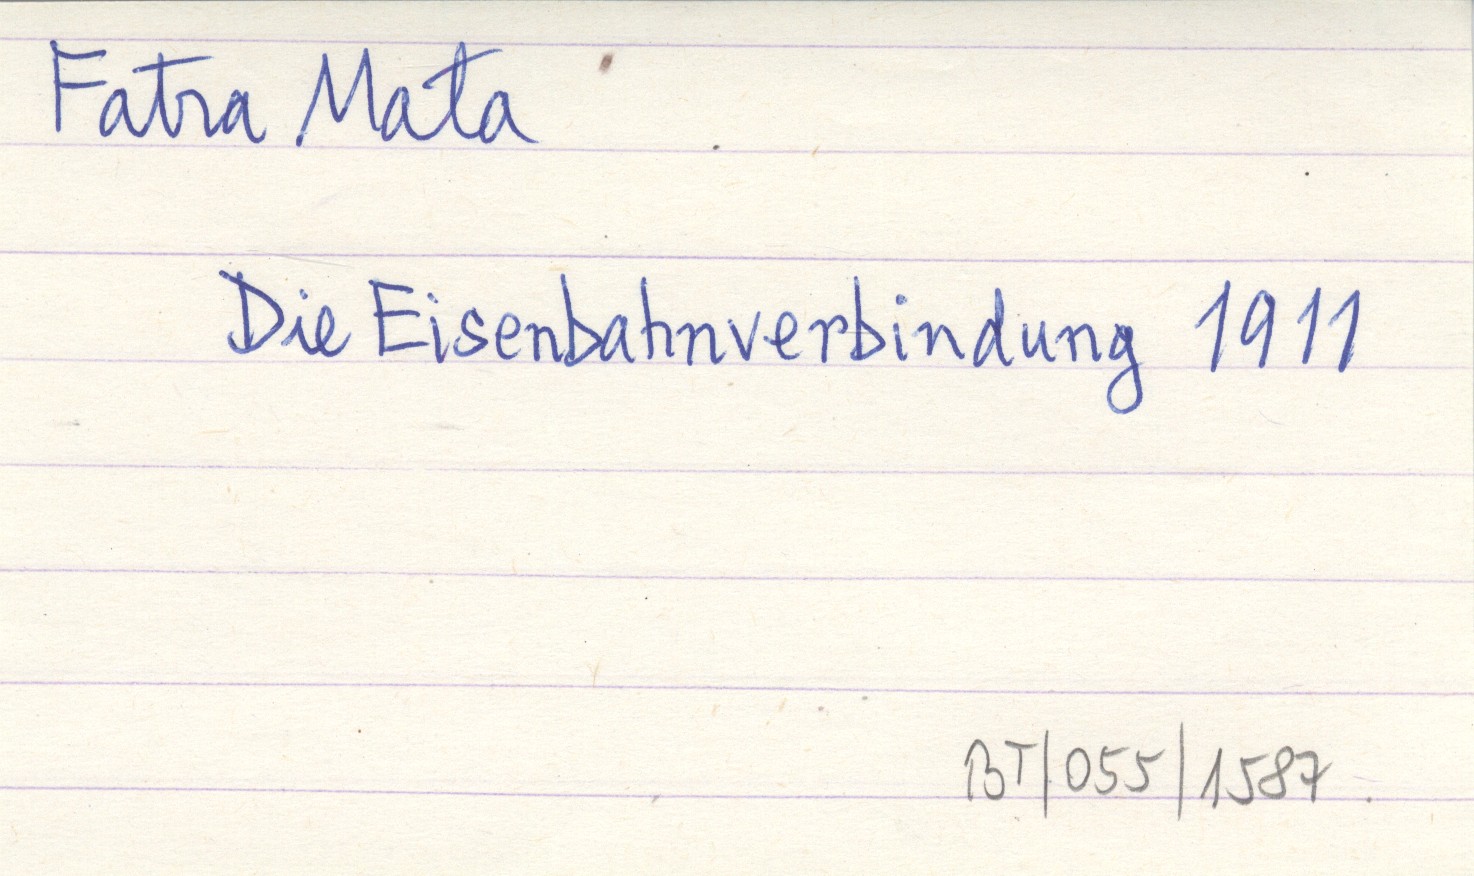 Fatra Mata
Die Eisenbahnverbindung 1911
BT/055/1587